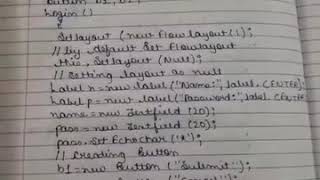 Button b1, b2;
Login ()
{
Setlayout (new Flowlayout());
// by default Set Flowlayout
this. Setlayout (Null);
// Setting layout as null
Label n = new label ("Name:", label. CENTER);
Label p = new label ("Password:", label. CENTER
name = new Textfield (20);
pass = new Textfield (20);
pass. Set EchoChar ('*');
// Creating Button
b1 = new Button ("Submit");